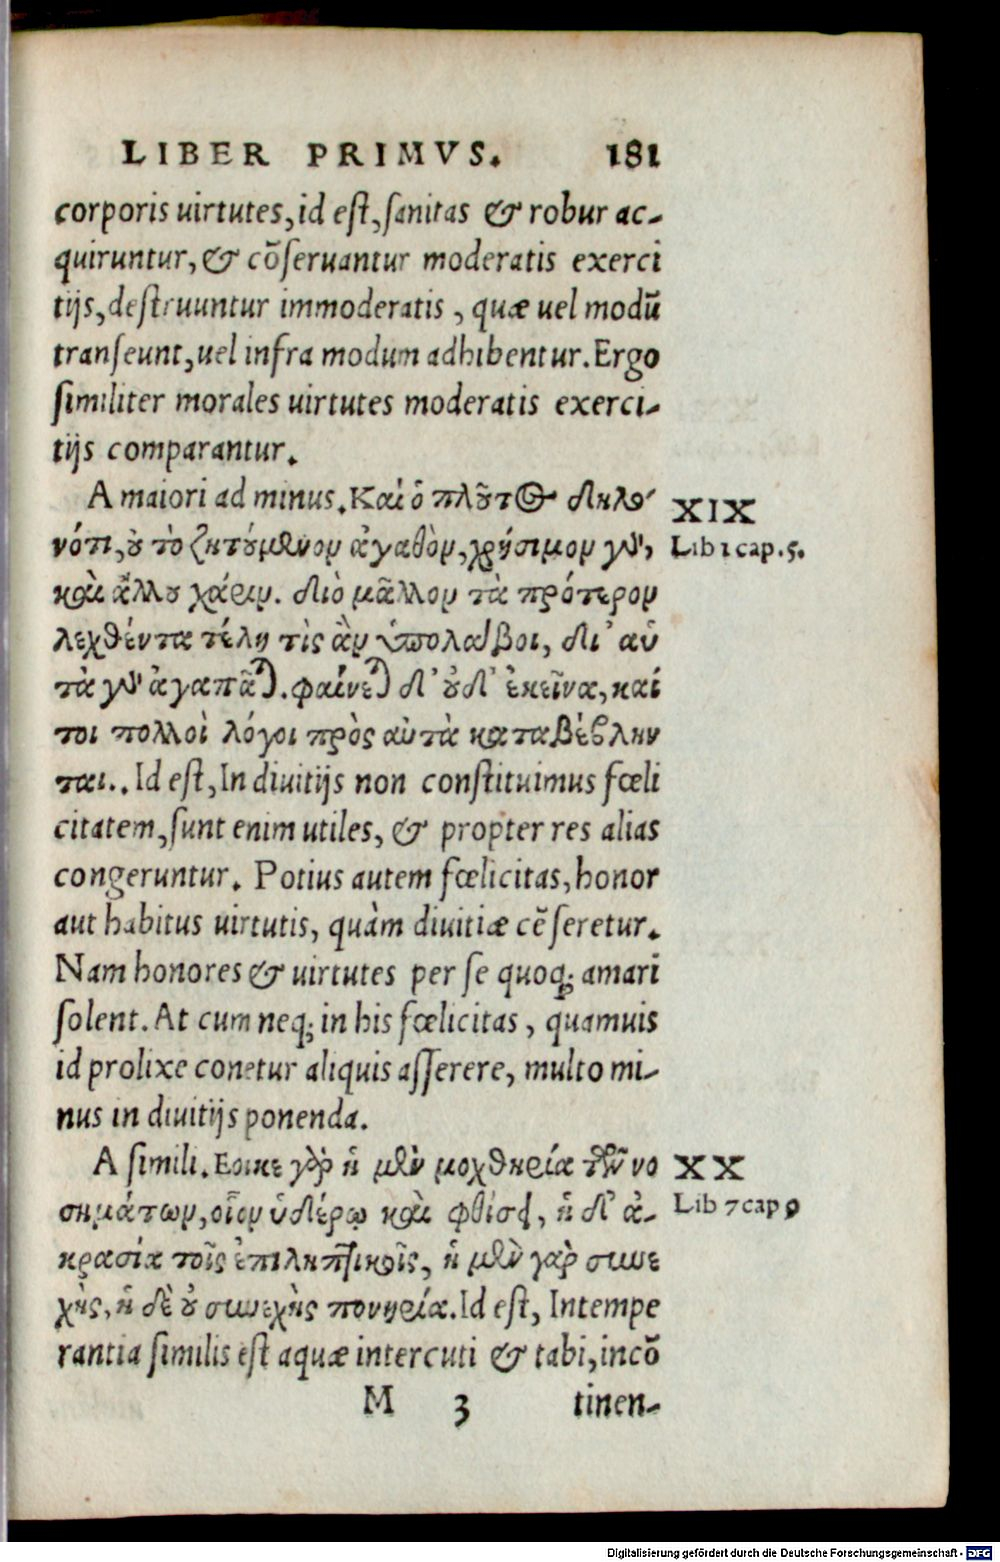 LIBER PRIMVS. 181
corporis uirtutes, id est, sanitas & robur ac-
quiruntur, & cōseruantur moderatis exerci
tijs, destruuntur immoderatis, quæ uel modū
transeunt, uel infra modum adhibentur. Ergo
similiter morales uirtutes moderatis exerci-
tijs comparantur.
A maiori ad minus. Καὶ ὁ πλοῦτος δηλο
νότι, οὐ τὸ ζητούμενον ἀγαθὸν, χρήσιμον γὰρ,
XIX
Lib 1 cap. 5.
καὶ ἄλλου χάριν. διὸ μᾶλλον τὰ πρότερον
λεχθέντα τέλη τὶς ἂν ὑπολάβοι, δι' αὑ
τὰ γὰρ ἀγαπᾶται. φαίνεται δ' οὐδ' ἐκεῖνα, καί
τοι πολλοὶ λόγοι πρὸς αὐτὰ καταβέβλην
ται.. Id est, In diuitijs non constituimus fœli
citatem, sunt enim utiles, & propter res alias
congeruntur. Potius autem fœlicitas, honor
aut habitus uirtutis, quàm diuitiæ cēseretur.
Nam honores & uirtutes per se quoq; amari
solent. At cum neq; in his fœlicitas, quamuis
id prolixe conetur aliquis asserere, multo mi-
nus in diuitijs ponenda.
A simili. Εοικε γὰρ ἡ μὲν μοχθηρία τῶν νο
XX
Lib 7 cap 9
σημάτων, οἷον ὑδέρῳ καὶ φθίσει, ἡ δ' ἀ-
κρασία τοῖς ἐπιληπτικοῖς, ἡ μὲν γὰρ συνε
χὴς, ἡ δὲ οὐ συνεχὴς πονηρία. Id est, Intempe
rantia similis est aquæ intercuti & tabi, incō
M 3 tinen-
Digitalisierung gefördert durch die Deutsche Forschungsgemeinschaft - DFG